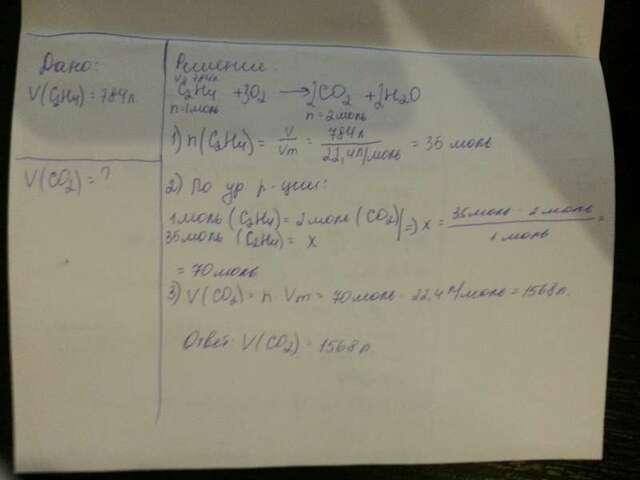 Дано:
V(C2H4) = 784л
V(CO2) = ?
Решение.
V= 784л
C2H4 + 3O2 → 2CO2 + 2H2O
n=1моль n = 2моль
1) n(C2H4) = V/Vm = 784л/22,4л/моль = 35 моль
2) По ур р-ции:
1моль (C2H4) = 2моль (CO2) => x = 35моль · 2моль/1моль =
35моль (C2H4) = x
= 70моль
3) V(CO2) = n · Vm = 70моль · 22,4 л/моль = 1568л.
Ответ: V(CO2) = 1568л